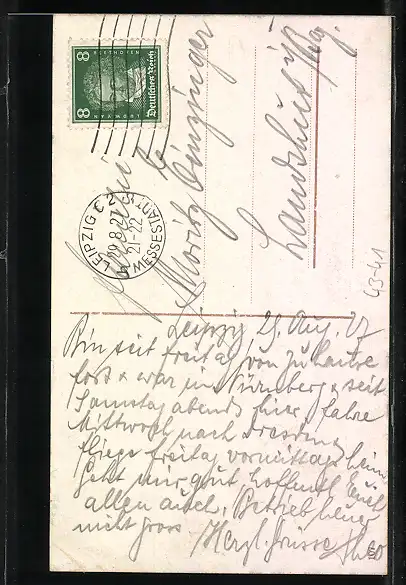 8 BEETHOVEN 8
Deutsches Reich
LEIPZIG C2
29.8.27
21-22
MESSESTADT
Moritz
Landshut i/Bay.
43-41
Leipzig 29. Aug. 27
Bin seit Freitag von zu Hause
fort & war in Nürnberg & seit
Samstag abend hier, fahre
Mittwoch nach Dresden &
fliege Freitag vormittag heim
Geht mir gut hoffentl. Euch
allen auch, Betrieb heuer
nicht gross Herzl. Grüsse